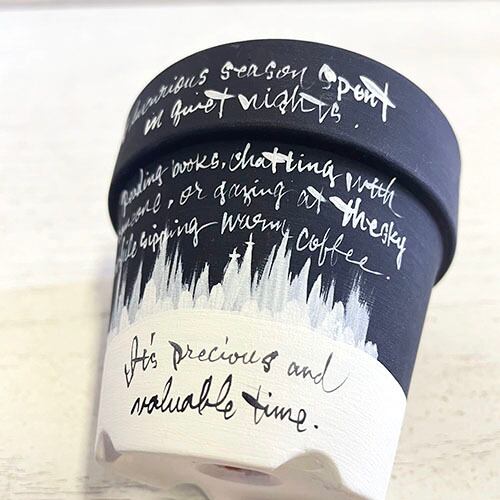 luxurious season spent
in quiet nights.
Reading books, chatting with
someone, or gazing at the sky
while sipping warm coffee.
It's precious and
valuable time.